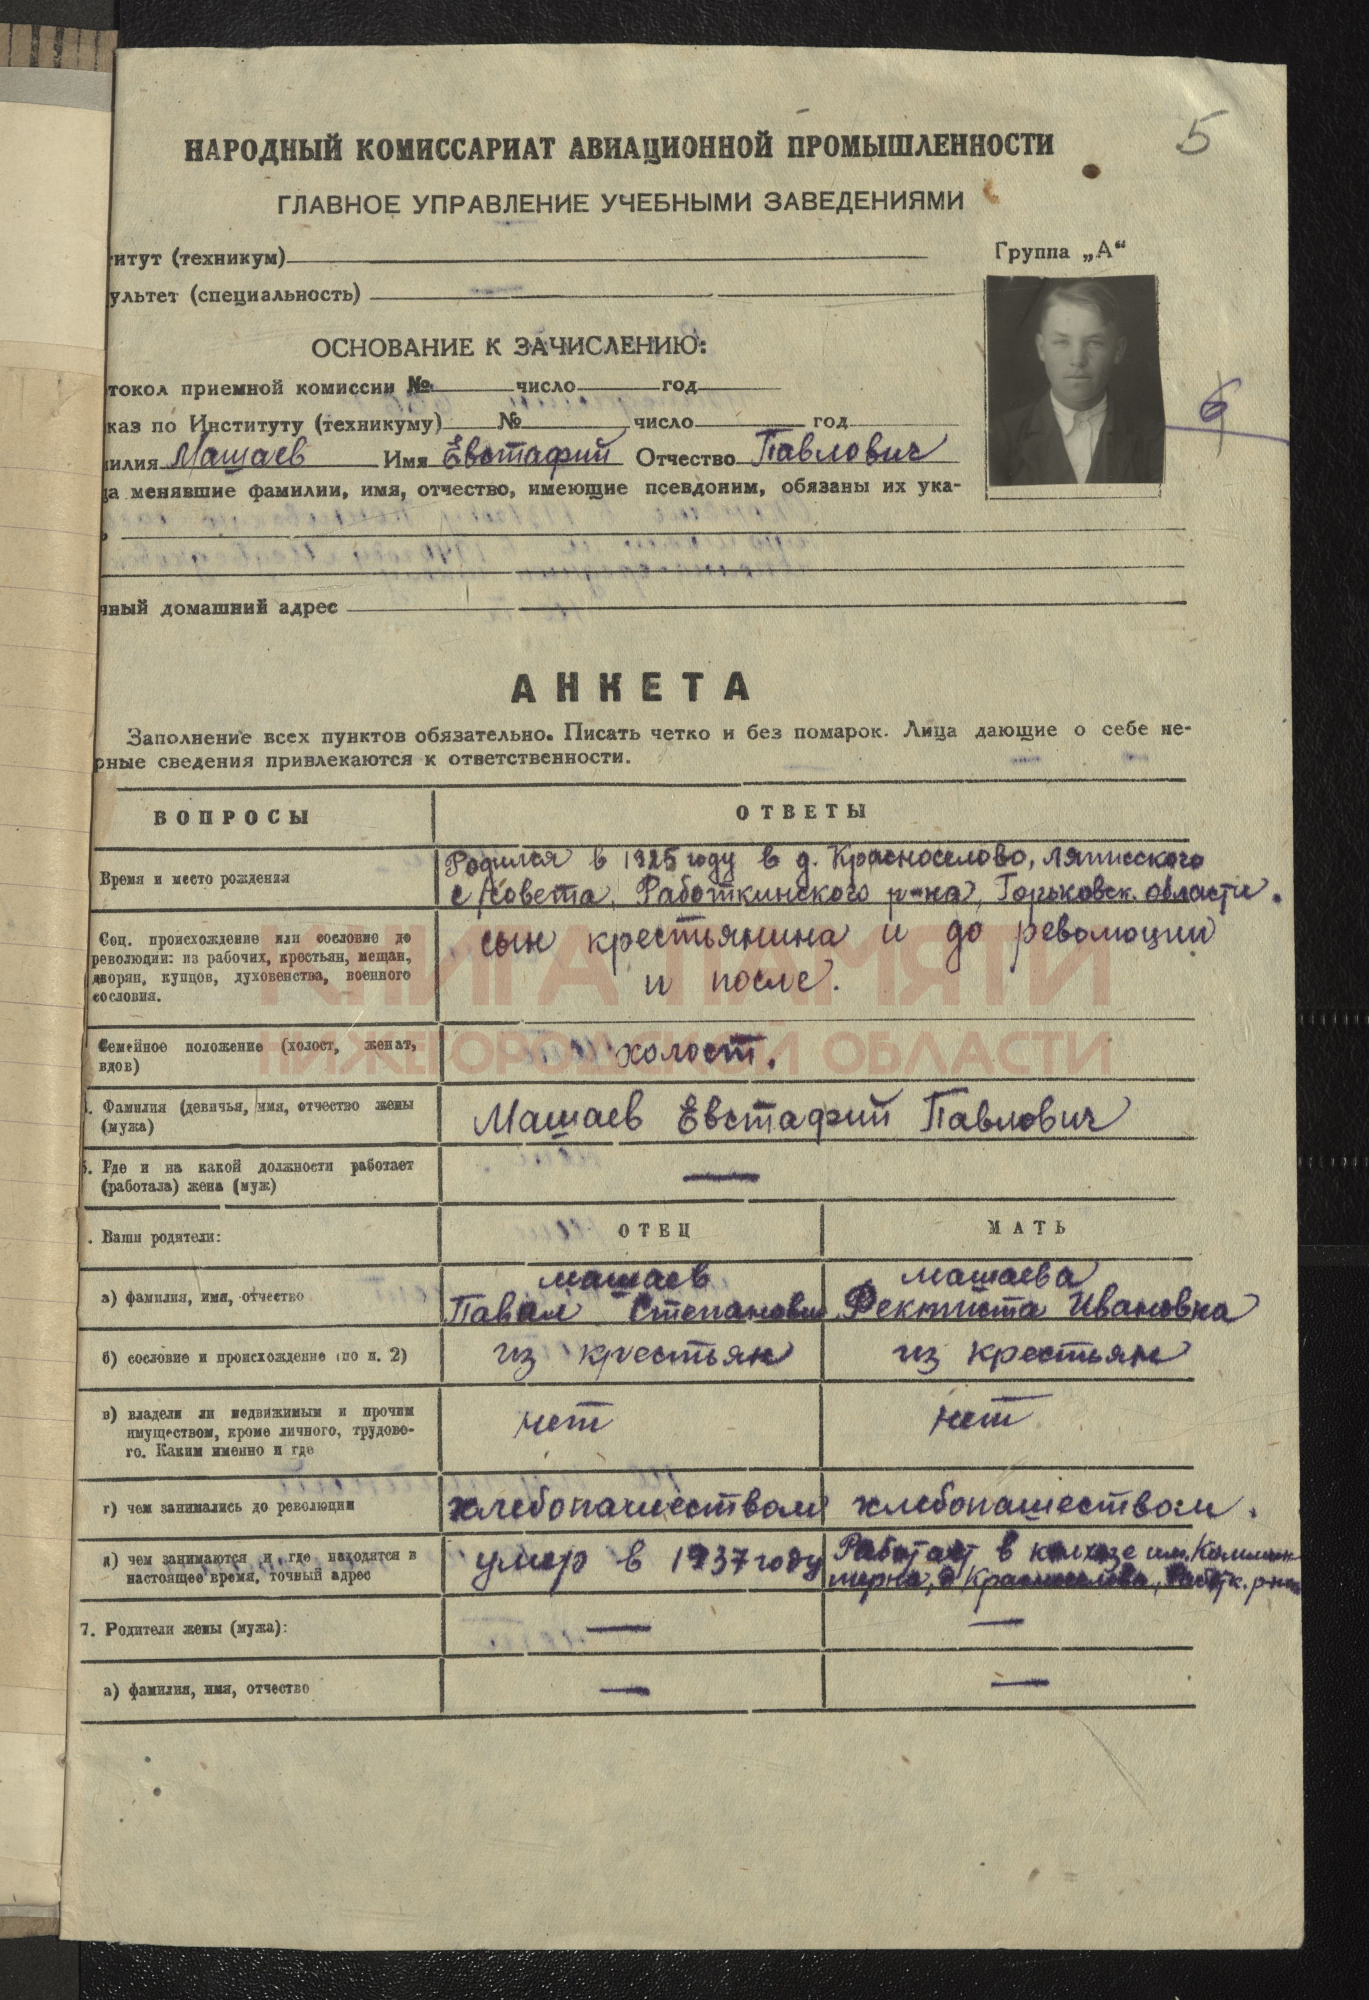 5
НАРОДНЫЙ КОМИССАРИАТ АВИАЦИОННОЙ ПРОМЫШЛЕННОСТИ
ГЛАВНОЕ УПРАВЛЕНИЕ УЧЕБНЫМИ ЗАВЕДЕНИЯМИ
титут (техникум)
Группа „А“
ультет (специальность)
ОСНОВАНИЕ К ЗАЧИСЛЕНИЮ:
токол приемной комиссии № число год
каз по Институту (техникуму) № число год
6
милия Машаев Имя Евстафий Отчество Павлович
ца менявшие фамилии, имя, отчество, имеющие псевдоним, обязаны их ука-
ный домашний адрес
АНКЕТА
Заполнение всех пунктов обязательно. Писать четко и без помарок. Лица дающие о себе не-
рные сведения привлекаются к ответственности.
ВОПРОСЫ ОТВЕТЫ
Время и место рождения
Родился в 1925 году в д. Красноселово, Ляписского
с/совета, Работкинского р-на, Горьковск. области.
Соц. происхождение или сословие до
революции: из рабочих, крестьян, мещан,
дворян, купцов, духовенства, военного
сословия.
сын крестьянина и до революции
и после.
КНИГА ПАМЯТИ
НИЖЕГОРОДСКОЙ ОБЛАСТИ
Семейное положение (холост, женат,
вдов)
холост.
. Фамилия (девичья, имя, отчество жены
(мужа)
Машаев Евстафий Павлович
5. Где и на какой должности работает
(работала) жена (муж)
—
. Ваши родители: ОТЕЦ МАТЬ
а) фамилия, имя, отчество
Машаев
Павел Степанович
Машаева
Фектиста Ивановна
б) сословие и происхождение (по п. 2) из крестьян из крестьян
в) владели ли недвижимым и прочим
имуществом, кроме личного, трудово-
го. Каким именно и где
нет нет
г) чем занимались до революции хлебопашеством хлебопашеством.
д) чем занимаются и где находятся в
настоящее время, точный адрес
умер в 1937 году
Работает в колхозе им. Комин-
терна, д Красноселово, Работк. р-на
7. Родители жены (мужа): — —
а) фамилия, имя, отчество — —